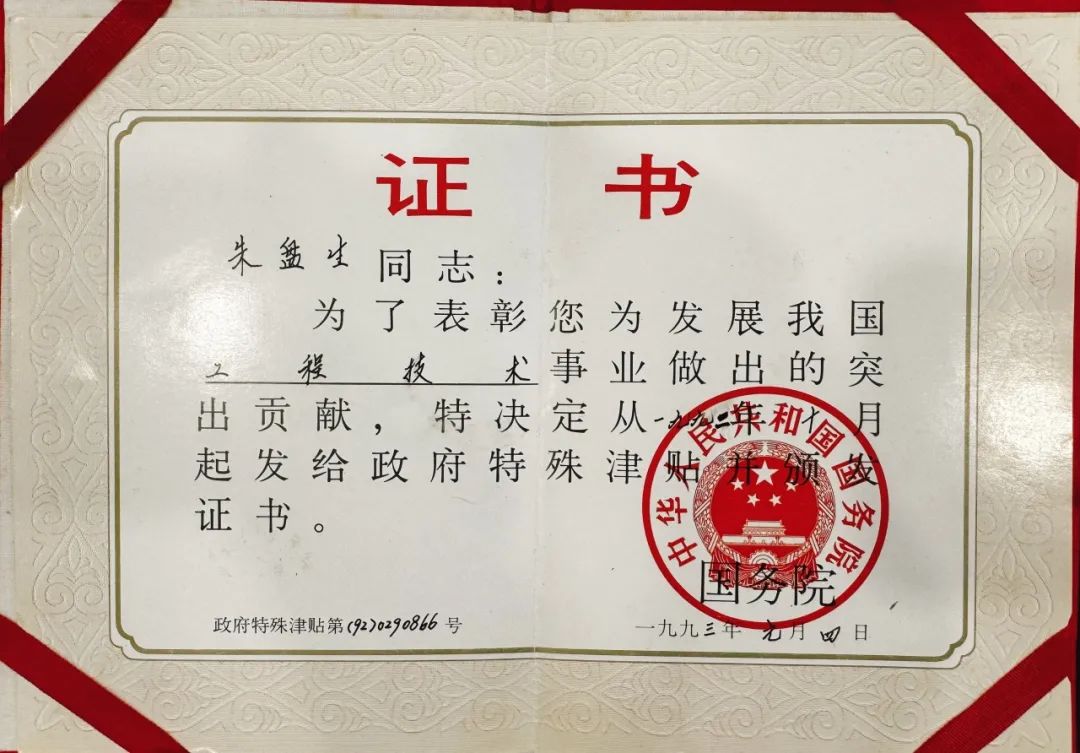 证书
朱盘生同志：
为了表彰您为发展我国
工程技术事业做出的突
出贡献，特决定从一九九二年十月
起发给政府特殊津贴并颁发
证书。
中华人民共和国国务院
国务院
政府特殊津贴第(92)0290866号
一九九三年元月四日